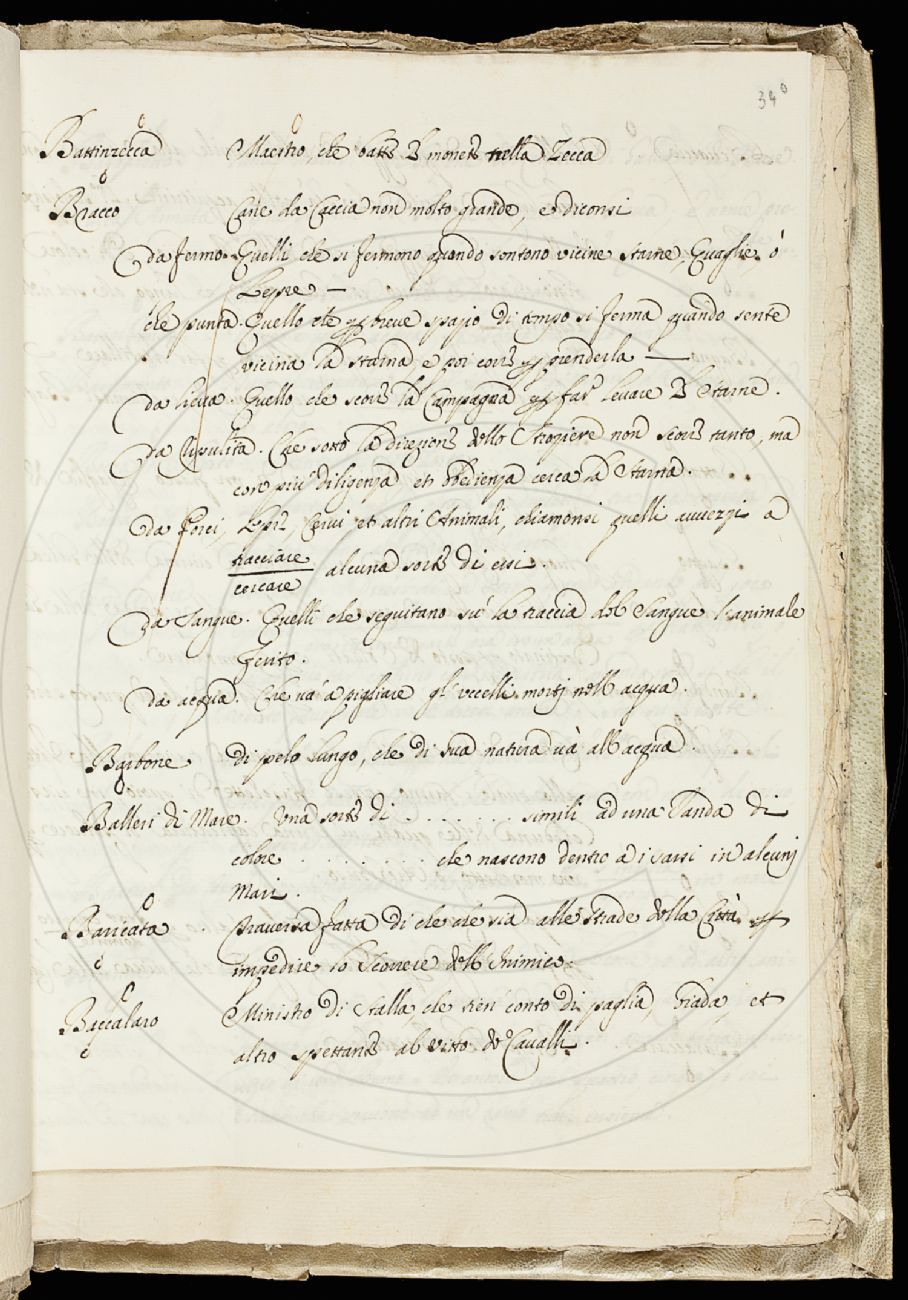 340
Battinzecca Maestro, che batte le monete nella Zecca
Bracco Cane da Caccia non molto grande, e diconsi
da fermo. Quelli che si fermono quando sentono vicine starne, Quaglie, ò
Lepre —
che punta Quello che per breve spazio di tempo si ferma quando sente
vicina la starna, e poi corre per prenderla —
da lieva. Quello che scorre la Campagna per far levare le starne.
da . Che sotto la direzione dello non scorre tanto, ma
con più diligenza et obedienza cerca la starna.
da Porci, Lepri, Cervi et altri Animali, chiamonsi quelli avvezzi a
tracciare
cercare alcuna sorte di essi.
da Sangue. Quelli che seguitano sù la traccia del Sangue l'animale
ferito.
da acqua. Che và à pigliare gl'uccelli mortj nell'acqua.
Barbone di pelo lungo, che di sua natura và all'acqua.
Balleri di Mare. Una sorte di . . . . . . . simili ad una Ianda di
colore . . . . . . . che nascono dentro à i sassi in alcunj
Mari.
Baricata Traversa fatta di che che sia alle strade della Città per
impedire lo Scorrere dell'Inimico.
Baccalaro Ministro di stalla, che tien conto di paglia, biada, et
altro spettante al vitto de Cavalli.